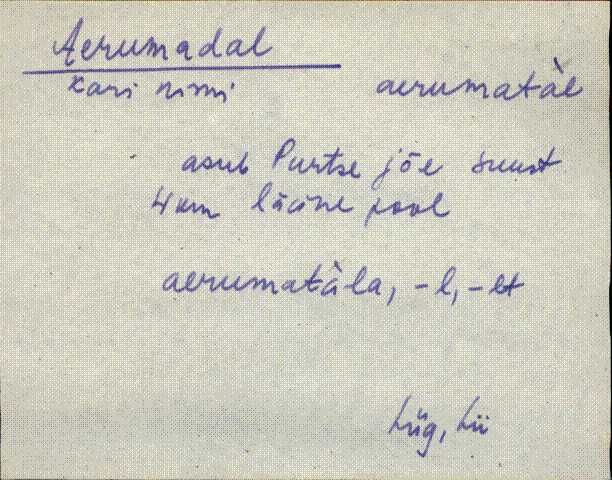 Aerumadal
kari nimi aerumatàl
asub Purtse jõe suust
4 km lääne pool
aerumatàla, -l, -lt
Lüg, Lii